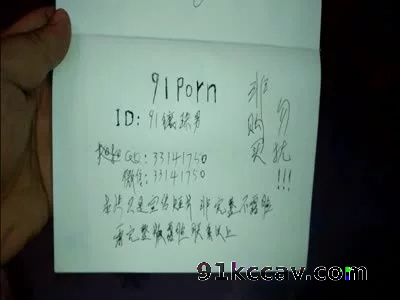 91Porn
ID: 91镶珠男
QQ: 33141750
微信: 33141750
非购买
勿扰!!!
本片只是宣传短片 非完整不露脸
看完整版露脸联系以上
91kccav.com